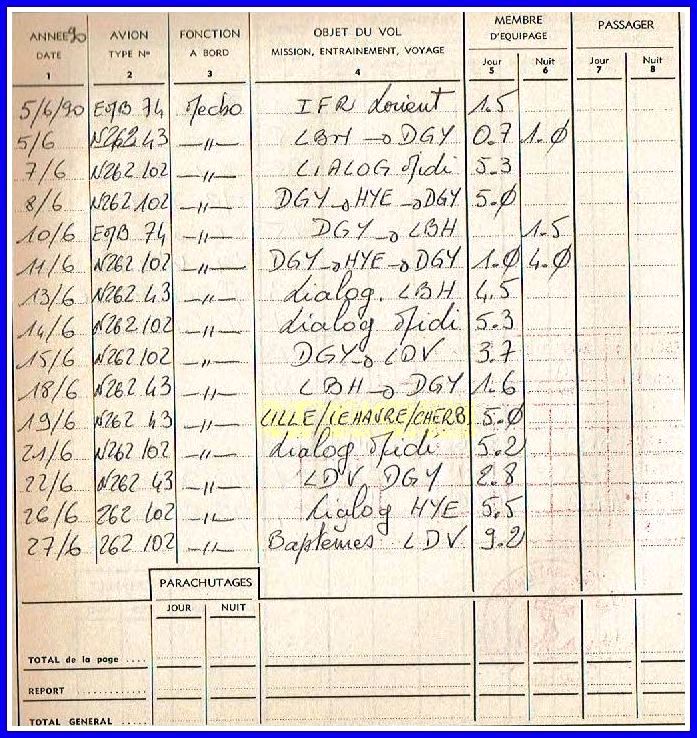 ANNEE 90 AVION FONCTION OBJET DU VOL MEMBRE D'EQUIPAGE PASSAGER
DATE TYPE N° A BORD MISSION, ENTRAINEMENT, VOYAGE Jour Nuit Jour Nuit
1 2 3 4 5 6 7 8
5/6/90 EMB 74 Mecbo IFR Lorient 1.5
5/6 N262 43 —〃— LBH → DGY 0.7 1.0
7/6 N262 102 —〃— DIALOG Midi 5.3
8/6 N262 102 —〃— DGY → HYE → DGY 5.0
10/6 EMB 74 —〃— DGY → LBH 1.5
11/6 N262 102 —〃— DGY → HYE → DGY 1.0 4.0
13/6 N262 43 —〃— dialog. LBH 4.5
14/6 N262 102 —〃— dialog Midi 5.3
15/6 N262 102 —〃— DGY → LDV 3.7
18/6 N262 43 —〃— LBH → DGY 1.6
19/6 N262 43 —〃— LILLE/LEHAVRE/CHERB 5.0
21/6 N262 102 —〃— dialog Midi 5.2
22/6 N262 43 —〃— LDV DGY 2.8
26/6 262 102 —〃— dialog HYE 5.5
27/6 262 102 —〃— Baptêmes LDV 9.2
PARACHUTAGES
JOUR NUIT
TOTAL de la page ....
REPORT ..............
TOTAL GENERAL .....